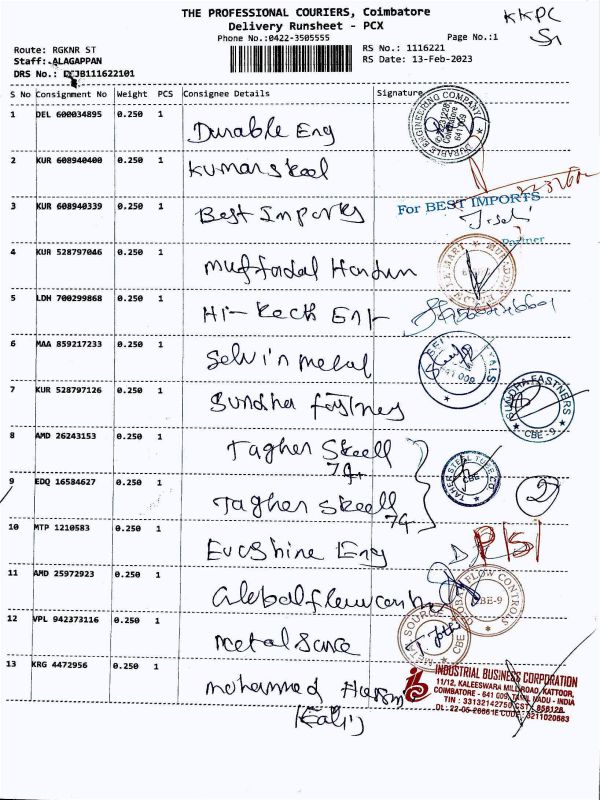 THE PROFESSIONAL COURIERS, Coimbatore
KKPC
Delivery Runsheet - PCX
Phone No.:0422-3505555
Page No.:1
Route: RGKNR ST
RS No.: 1116221
Staff: ALAGAPPAN
RS Date: 13-Feb-2023
DRS No.: CJB111622101
S No Consignment No Weight PCS Consignee Details Signature
1 DEL 600034895 0.250 1 Durable Eng
DURABLE ENGINEERING COMPANY
Coimbatore
641 009
2 KUR 608940400 0.250 1 Kumar steel
3 KUR 608940339 0.250 1 Best Imports
For BEST IMPORTS
Partner
4 KUR 528797046 0.250 1
5 LDH 700299868 0.250 1 Hi-tech
6 MAA 859217233 0.250 1 Selvin metal
7 KUR 528797126 0.250 1 Sundha
FASTNERS
CBE-9
8 AMD 26243153 0.250 1 Tagher Steell
74
9 EDQ 16584627 0.250 1 Tagher Steell
74
TAHER STEEL TUBE CO
CBE
2
10 MTP 1210583 0.250 1 Eng
11 AMD 25972923 0.250 1
GLOBAL FLOW CONTROLS
CBE-9
12 VPL 942373116 0.250 1
METAL SOURCE
CBE
13 KRG 4472956 0.250 1 mohammed
INDUSTRIAL BUSINESS CORPORATION
11/12, KALEESWARA MILL ROAD, KATTOOR,
COIMBATORE - 641 009, TAMIL NADU - INDIA
TIN : 33132142750 CST : 856128